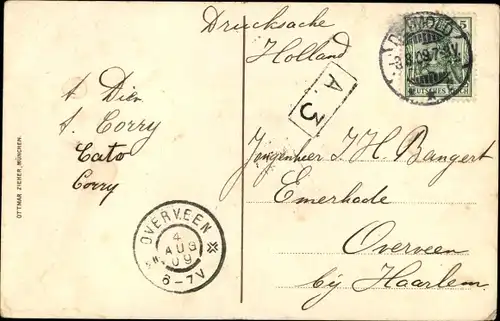 Drucksache
Holland
5
DETMOLD
3.8.09.7-8V.
DEUTSCHES REICH
A.3
t Dien
t. Corry
Cato
Corry
OTTMAR ZIEHER, MÜNCHEN.
OVERVEEN
4
AUG
09
6-7V
J. H. Bangert
Emerhode
Overveen
bij Haarlem.